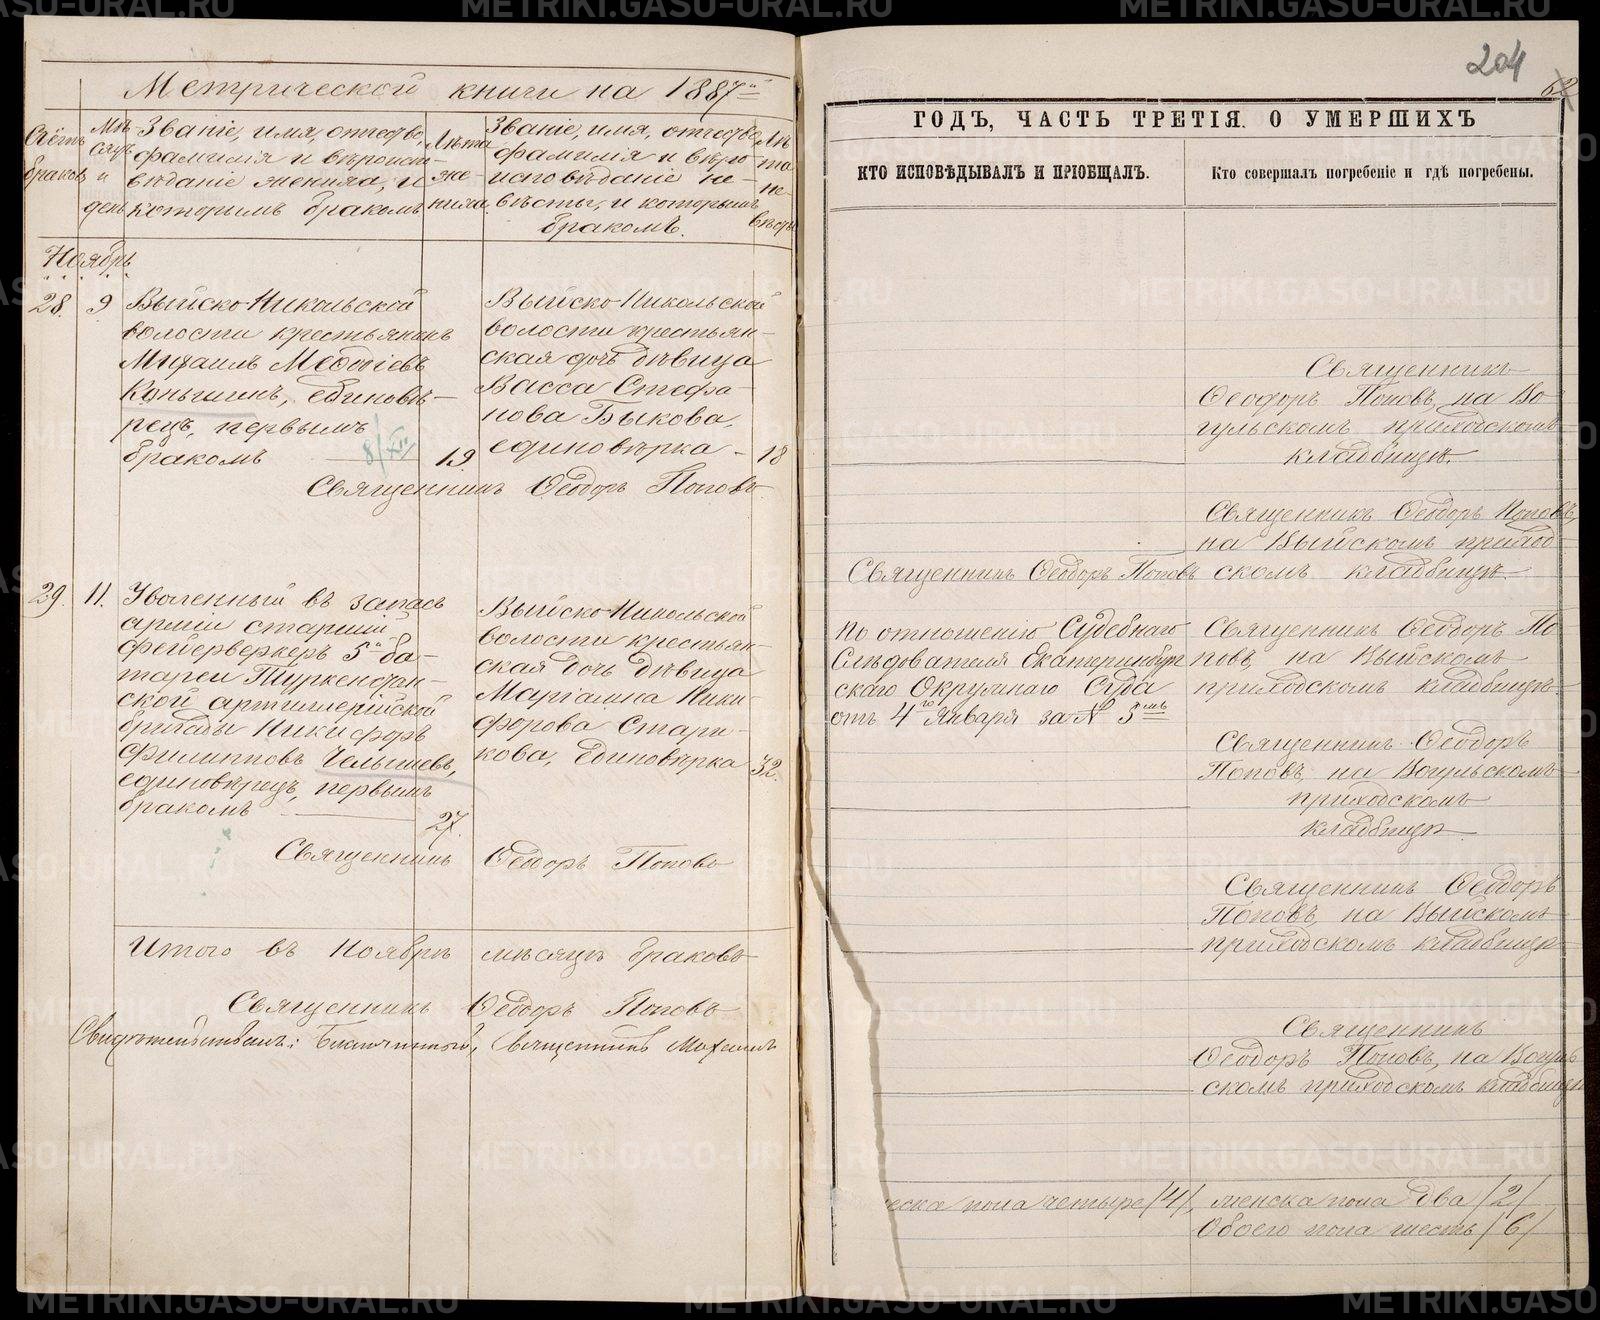 Метрической книги на 1887й
Счетъ браковъ
Мѣсяцъ и день
Званіе, имя, отчество,
фамилія и вѣроиспо-
вѣданіе жениха, и
которымъ бракомъ
Лѣта
же-
ниха.
Званіе, имя, отчество,
фамилія и вѣро
исповѣданіе не-
вѣсты, и которымъ
бракомъ.
Лѣ
та
не
вѣсты
Ноябрь
28. 9
Выйско-Никольской
волости крестьянинъ
Михаилъ
единовѣ-
рецъ, первымъ
бракомъ
19.
Выйско-Никольской
волости крестьян-
ская дочь дѣвица
Васса Стефа-
нова Быкова,
единовѣрка - 18
Священникъ Ѳеодоръ Поповъ
29. 11.
Уволенный въ запасъ
арміи старшій
фейерверкеръ 5й ба-
тареи Туркестан-
ской артиллерійской
бригады Никифоръ
Филипповъ Челышевъ,
единовѣрецъ, первымъ
бракомъ
27.
Выйско-Никольской
волости крестьян-
ская дочь дѣвица
Маріамна Ники-
форова Стари-
кова, единовѣрка 32.
Священникъ Ѳеодоръ Поповъ
Итого въ Ноябрѣ мѣсяцѣ браковъ
Священникъ Ѳеодоръ Поповъ
Свидѣтельствовалъ: Благочинный, Священникъ
204
62
ГОДЪ, ЧАСТЬ ТРЕТІЯ. О УМЕРШИХЪ
КТО ИСПОВѢДЫВАЛЪ И ПРІОБЩАЛЪ.
Кто совершалъ погребеніе и гдѣ погребены.
Священникъ
Ѳеодоръ Поповъ, на Во
гульскомъ приходскомъ
кладбищѣ.
Священникъ Ѳеодоръ Поповъ,
на Выйскомъ приход-
Священникъ Ѳеодоръ Поповъ
скомъ кладбищѣ.
По отношенію Судебнаго
Слѣдователя Екатеринбург
скаго Окружнаго Суда
отъ 4го Января за № 5мъ
Священникъ Ѳеодоръ По
повъ, на Выйскомъ
приходскомъ кладбищѣ.
Священникъ Ѳеодоръ
Поповъ, на Вогульскомъ
приходскомъ
кладбищѣ
Священникъ Ѳеодоръ
Поповъ, на Выйскомъ
приходскомъ кладбищѣ
Священникъ
Ѳеодоръ Поповъ, на Вогуль
скомъ приходскомъ кладбищѣ
ческа пола четыре /4/, женска пола два /2/
Обоего пола шесть /6/
METRIKI.GASO-URAL.RU